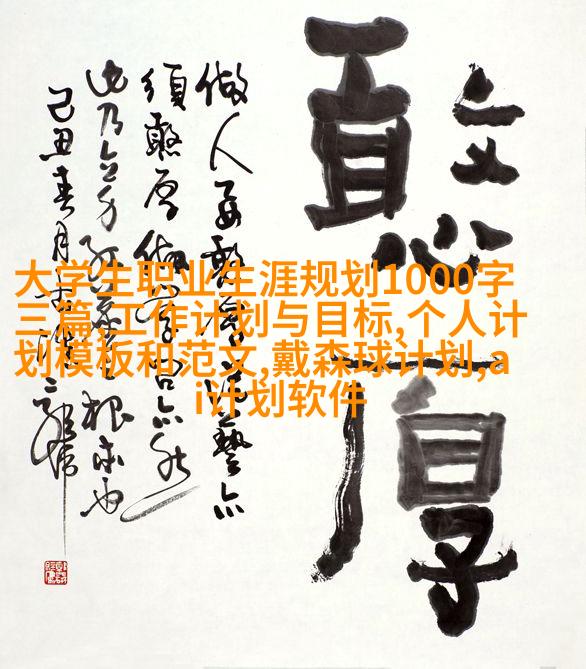 憨厚
做人要藝亦
須憨厚做學問亦然
此乃根本也
己丑春月
大学生职业生涯规划1000字
三篇,工作计划与目标,个人计
划模板和范文,戴森球计划,a
i计划软件